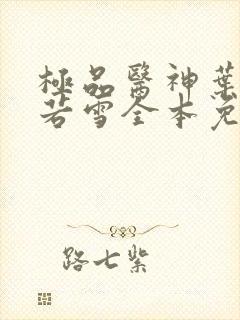 極品醫神葉
若雪全本免
路七紫